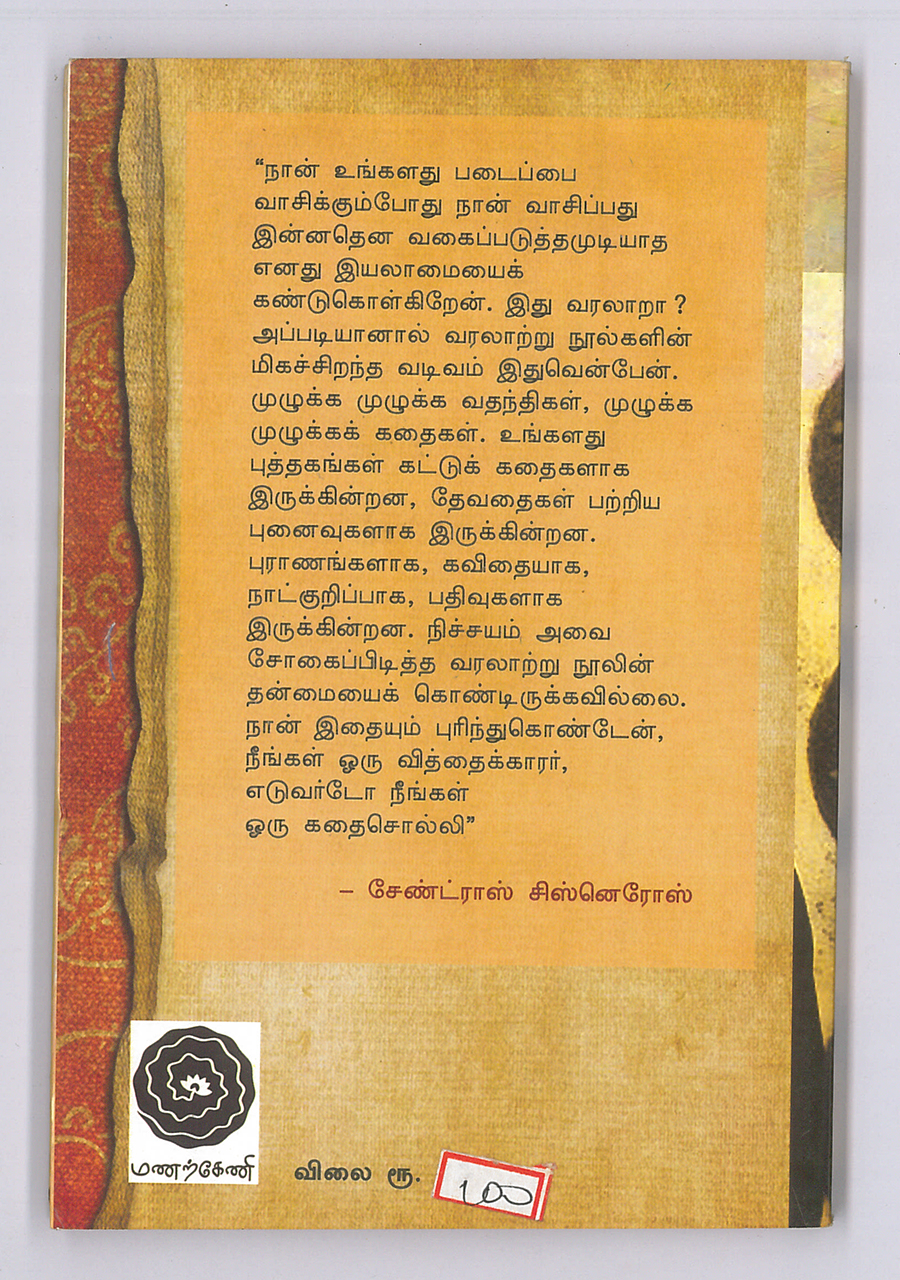 “நான் உங்களது படைப்பை
வாசிக்கும்போது நான் வாசிப்பது
இன்னதென வகைப்படுத்தமுடியாத
எனது இயலாமையைக்
கண்டுகொள்கிறேன். இது வரலாறா ?
அப்படியானால் வரலாற்று நூல்களின்
மிகச்சிறந்த வடிவம் இதுவென்பேன்.
முழுக்க முழுக்க வதந்திகள், முழுக்க
முழுக்கக் கதைகள். உங்களது
புத்தகங்கள் கட்டுக் கதைகளாக
இருக்கின்றன, தேவதைகள் பற்றிய
புனைவுகளாக இருக்கின்றன.
புராணங்களாக, கவிதையாக,
நாட்குறிப்பாக, பதிவுகளாக
இருக்கின்றன. நிச்சயம் அவை
சோகைப்பிடித்த வரலாற்று நூலின்
தன்மையைக் கொண்டிருக்கவில்லை.
நான் இதையும் புரிந்துகொண்டேன்,
நீங்கள் ஒரு வித்தைக்காரர்,
எடுவர்டோ நீங்கள்
ஒரு கதைசொல்லி”
– சேண்ட்ராஸ் சிஸ்னெரோஸ்
மணற்கேணி
விலை ரூ. 100